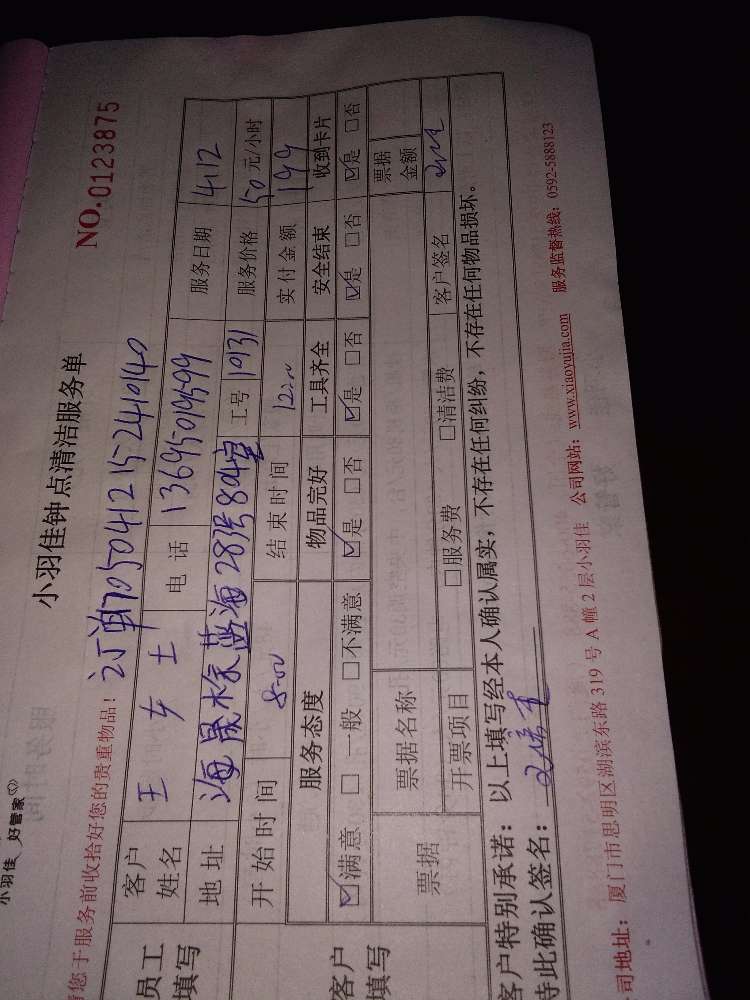 小羽佳 好管家
小羽佳钟点清洁服务单
NO.0123875
请您于服务前收拾好您的贵重物品！ 订单7050412152410140
员工填写
客户姓名 王女士 电话 13695019599 服务日期 412
地址 海晟棕蓝海28号804室 工号 1931 服务价格 50元/小时
开始时间 8:00 结束时间 12:00 实付金额 199
客户填写
服务态度 物品完好 工具齐全 安全结束 收到卡片
☑满意 □一般 □不满意 ☑是 □否 ☑是 □否 ☑是 □否 ☑是 □否
票据 票据名称 票据金额
开票项目 □服务费 □清洁费 客户签名
客户特别承诺：以上填写经本人确认属实，不存在任何纠纷，不存在任何物品损坏。
特此确认签名：
司地址：厦门市思明区湖滨东路319号A幢2层小羽佳 公司网站：www.xiaoyujia.com 服务监督热线：0592-5888123